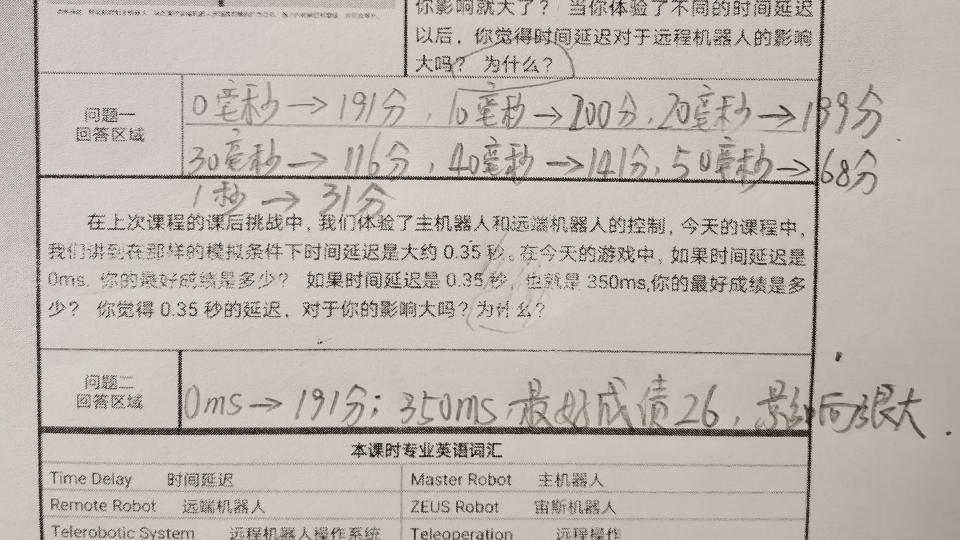 你影响就大了？ 当你体验了不同的时间延迟
以后，你觉得时间延迟对于远程机器人的影响
大吗？ 为什么？
问题一
回答区域
0毫秒→191分，10毫秒→200分，20毫秒→199分
30毫秒→116分，40毫秒→141分，50毫秒→68分
1秒→31分
在上次课程的课后挑战中，我们体验了主机器人和远端机器人的控制，今天的课程中，
我们讲到在那样的模拟条件下时间延迟是大约 0.35 秒。在今天的游戏中，如果时间延迟是
0ms, 你的最好成绩是多少？ 如果时间延迟是 0.35 秒，也就是 350ms,你的最好成绩是多
少？ 你觉得 0.35 秒的延迟，对于你的影响大吗？为什么？
问题二
回答区域
0ms→191分；350ms,最好成债26，影响很大.
本课时专业英语词汇
Time Delay 时间延迟 Master Robot 主机器人
Remote Robot 远端机器人 ZEUS Robot 宙斯机器人
Telerobotic System 远程机器人操作系统 Teleoperation 远程操作